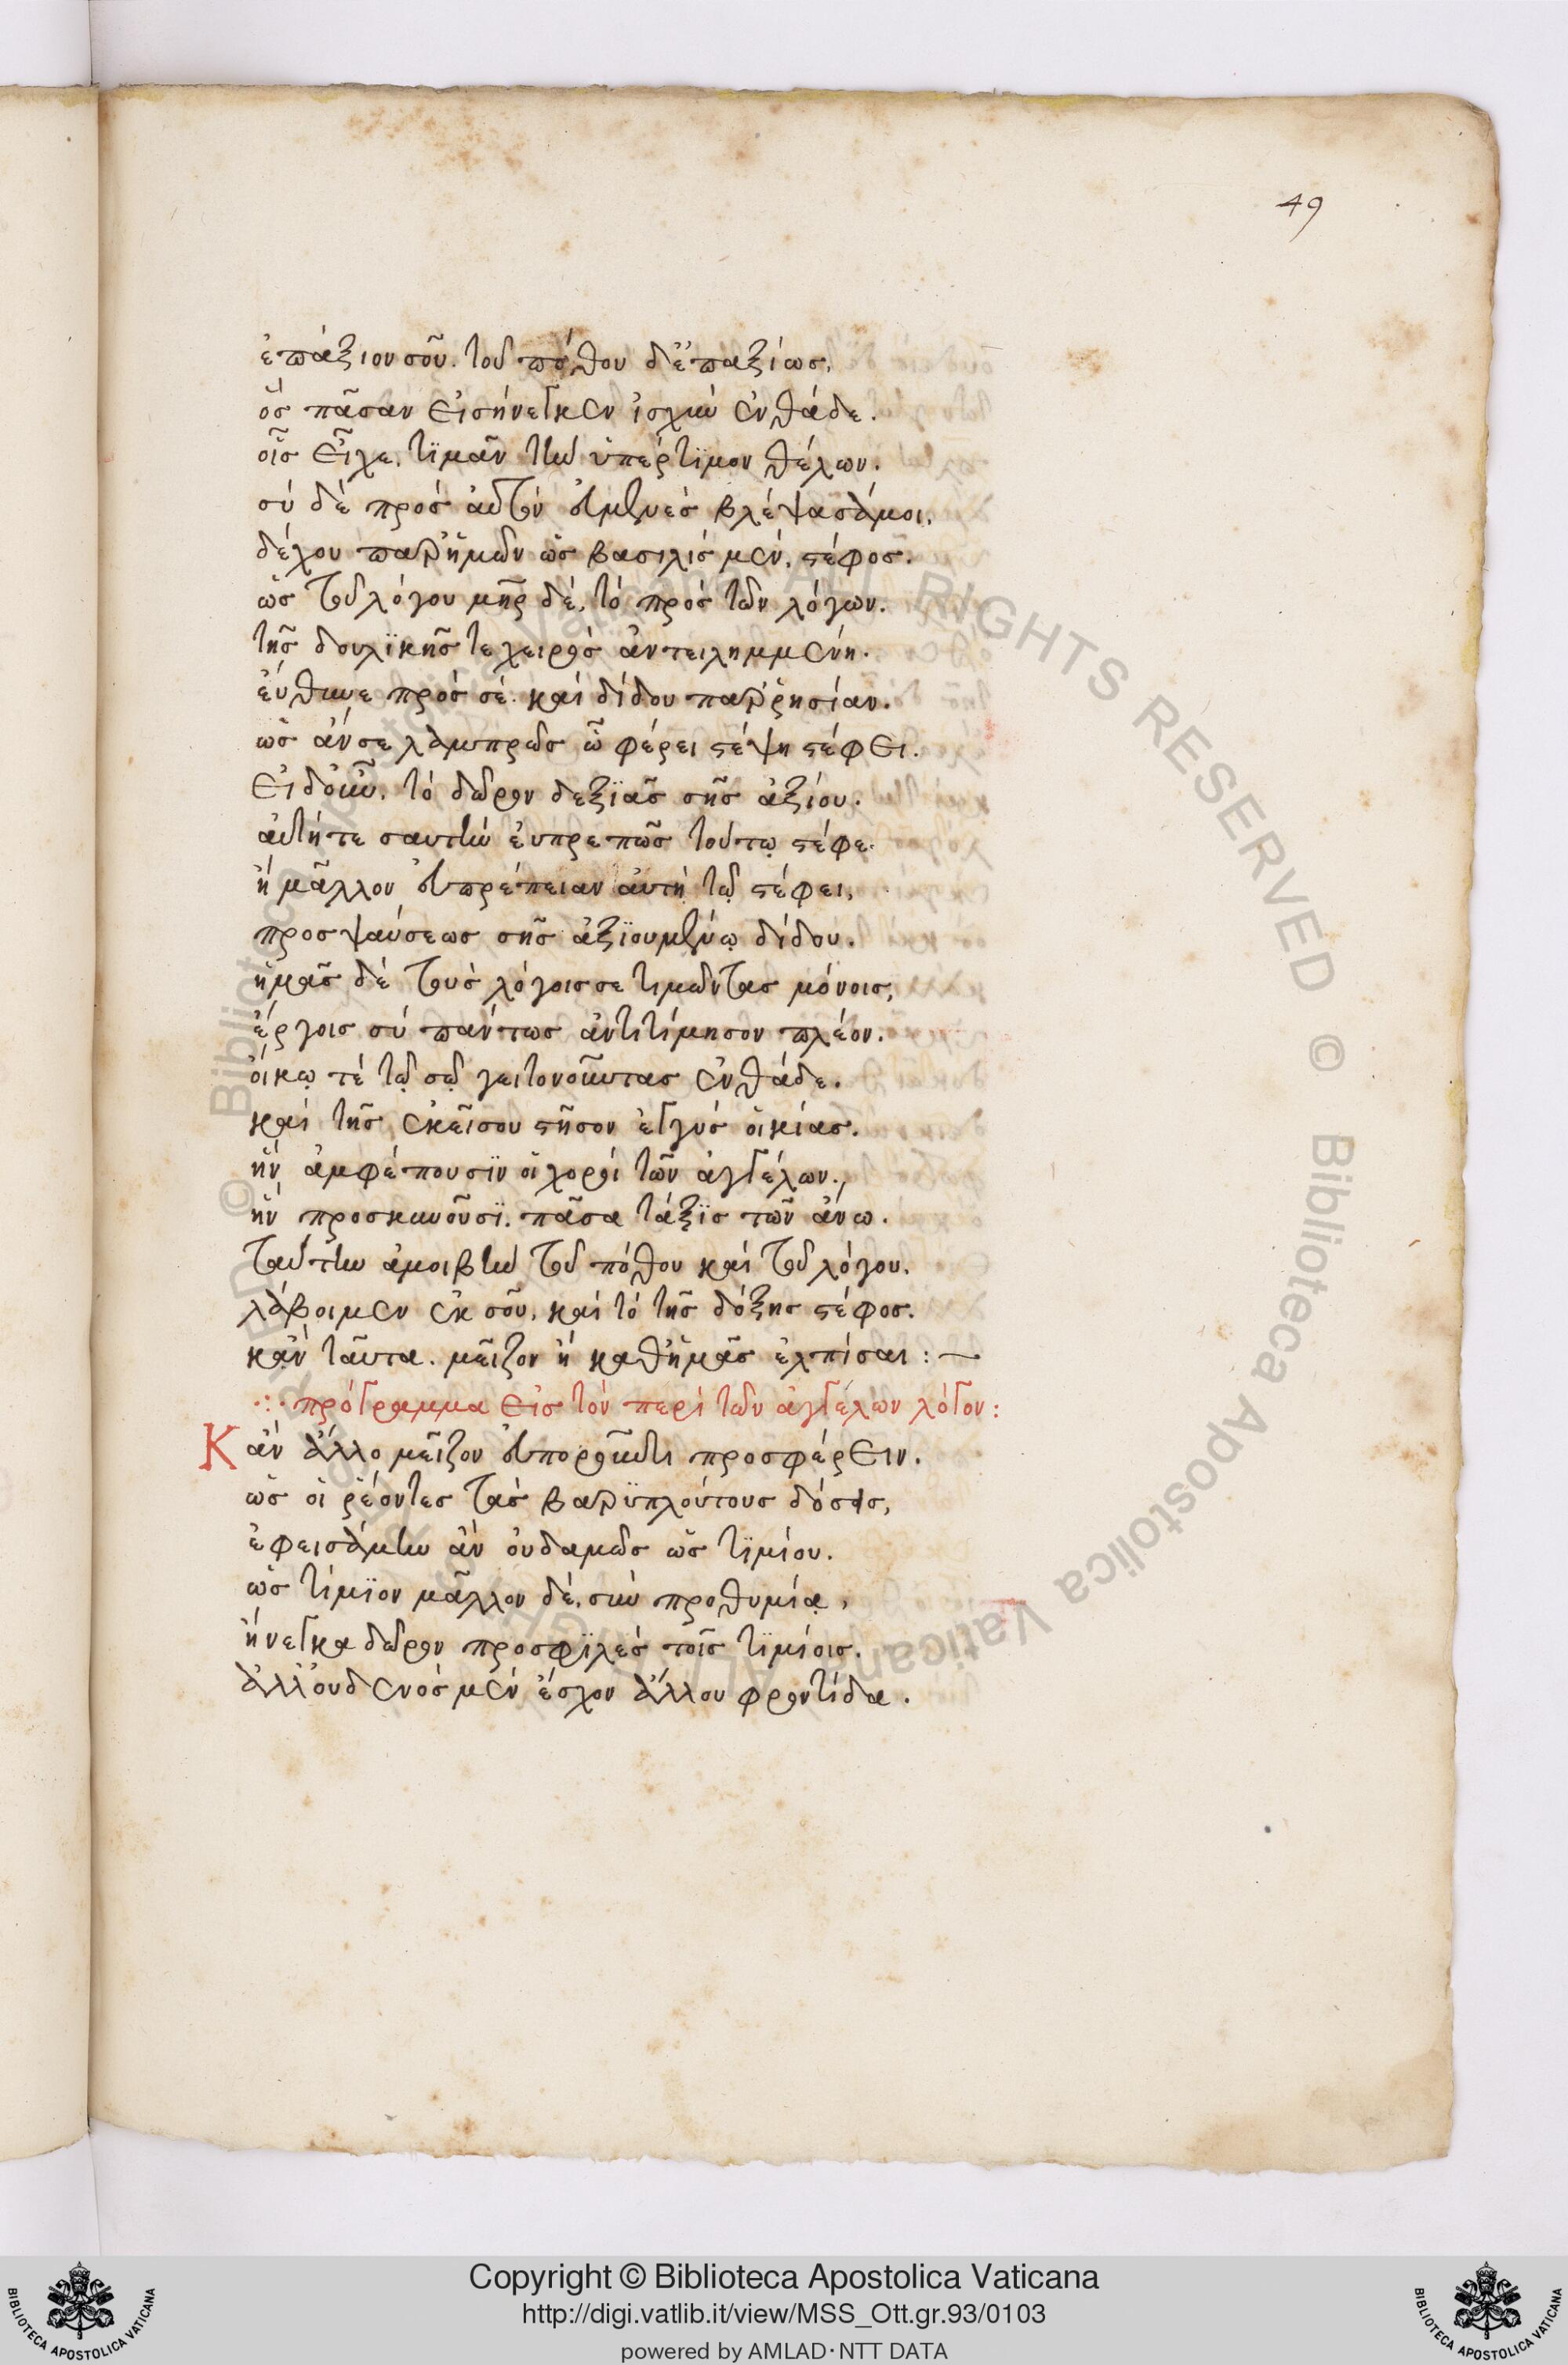 49
ἐπάξιον σοῦ. τοῦ πόθου δ' ἐπαξίως,
ὃς πᾶσαν εἰσήνεγκεν ἰσχὺν ἐνθάδε.
οἷς εἶχε, τϊμᾶν τὴν ὑπέρτϊμον θέλων.
σὺ δὲ πρὸς αὐτὸν εὐμενὲς βλέψασά μοι,
δέχου παρ' ἡμῶν ὡς βασιλὶς μὲν, στέφος.
ὡς τοῦ λόγου μῆρ δὲ, τὸ πρὸς τῶν λόγων.
τῆς δουλϊκῆς τε χειρὸς ἀντειλημμένη.
εὔθυνε πρὸς σὲ. καὶ δίδου παρῥησίαν.
ὡς ἄν σε λαμπρῶς ὧ φέρει στέψη στέφει.
εἰ δ' οὖν, τὸ δῶρον δεξϊᾶς σῆς ἀξίου.
αὐτή τε σαυτὴν εὐπρεπῶς τούτῳ στέφε.
ἢ μᾶλλον εὐπρέπειαν αὐτὴ τῷ στέφει,
προσψαύσεως σῆς ἀξϊουμένῳ δίδου.
ἡμᾶς δὲ τοὺς λόγοις σε τιμῶντας μόνοις,
ἔργοις σὺ πάντως ἀντιτίμησον πλέον.
οἴκῳ τὲ τῷ σῷ γειτονοῦντας ἐνθάδε.
καὶ τῆς ἐκεῖ σου στῆσον ἐγγὺς οἰκίας.
ἣν ἀμφέπουσϊν οἱ χοροὶ τῶν ἀγγέλων.,
ἣν προσκυνοῦσϊ. πᾶσα τάξϊς τῶν ἄνω.
ταύτην ἀμοιβὴν τοῦ πόθου καὶ τοῦ λόγου.
λάβοιμεν ἐκ σοῦ, καὶ τὸ τῆς δόξης στέφος.
κἂν ταῦτα. μεῖζον ἢ καθ' ἡμᾶς ἐλπίσαι :~
πρόγραμμα εἰς τὸν περὶ τῶν ἀγγέλων λόγον:
Κἂν ἄλλο μεῖζον εὐποροῦντι προσφέρειν.
ὡς οἱ ῥέοντες τὰς βαρϋπλούτους δόσεις,
ἐφεισάμην ἂν οὐδαμῶς ὡς τϊμίου.
ὡς τίμϊον μᾶλλον δὲ, σὺν προθυμίᾳ,
ἤνεγκα δῶρον προσφϊλὲς τοῖς τϊμίοις.
ἀλλ' οὐδενὸς μὲν ἔσχον ἄλλου φροντίδα.
Copyright © Biblioteca Apostolica Vaticana
http://digi.vatlib.it/view/MSS_Ott.gr.93/0103
powered by AMLAD·NTT DATA